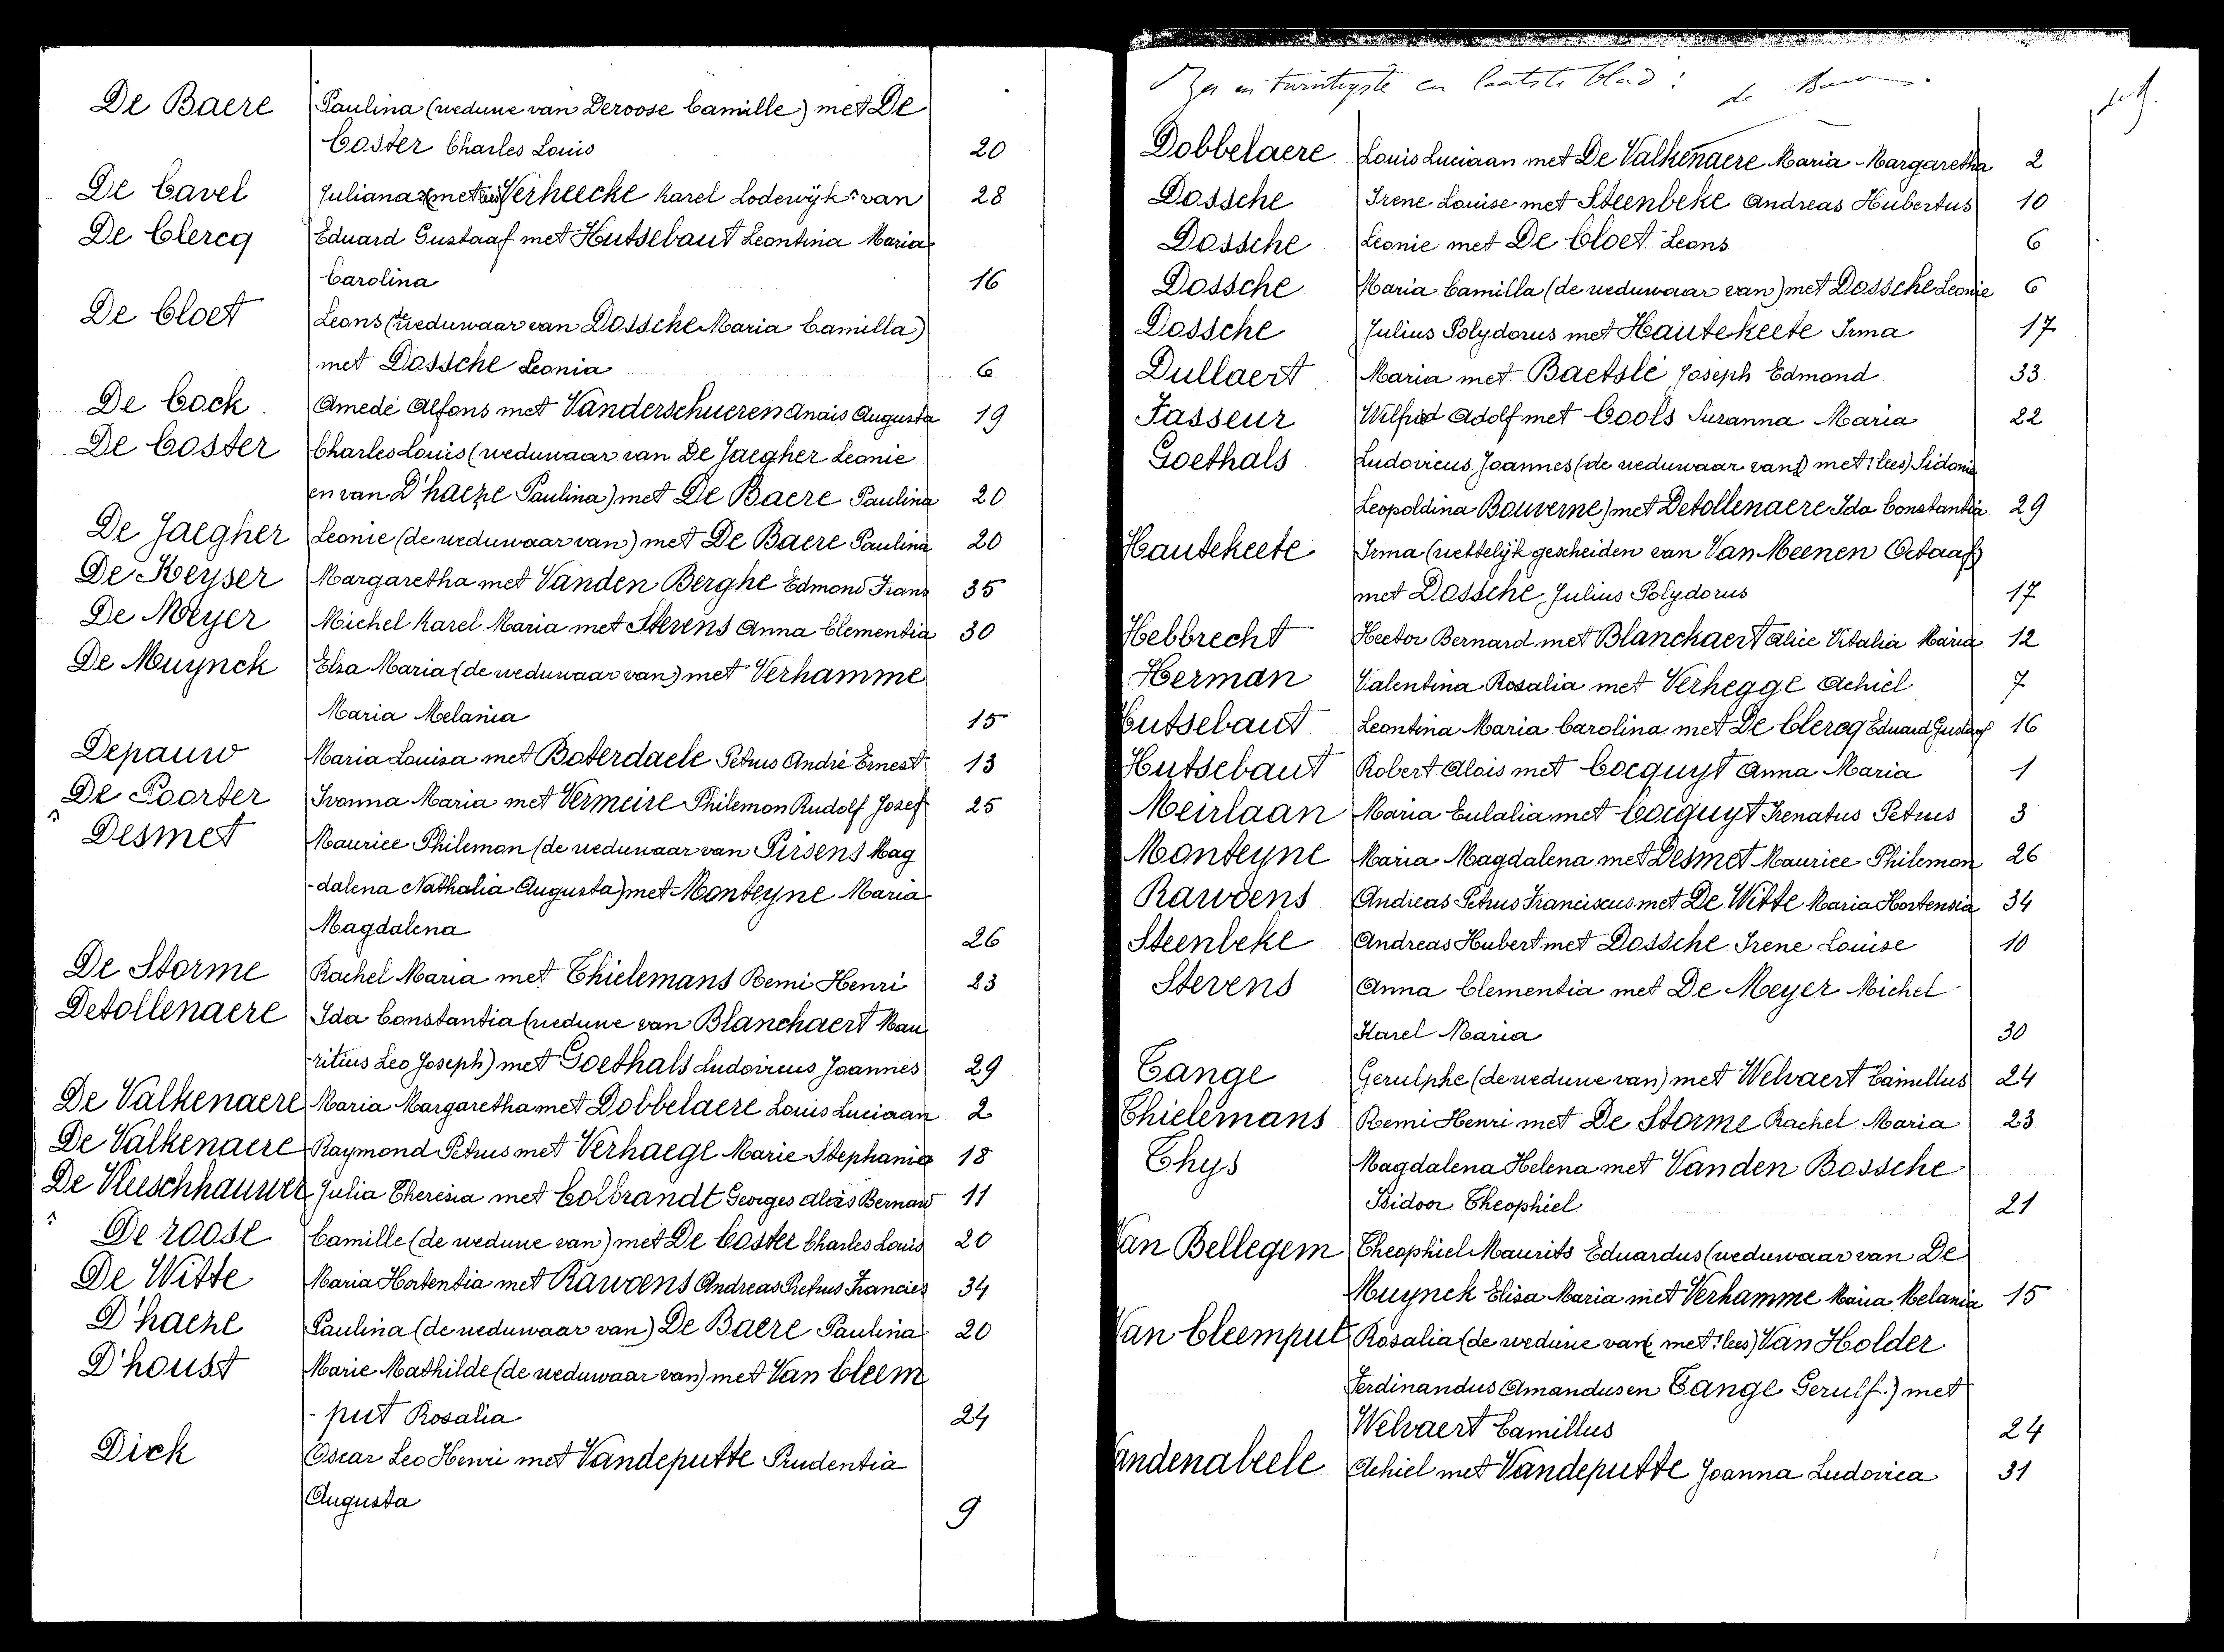 De Baere Paulina (weduwe van Deroose Camille) met De
Coster Charles Louis 20
De Cavel Juliana (met Verheecke Karel Lodewijk van 28
De Clercq Eduard Gustaaf met Hutsebaut Leontina Maria
Carolina 16
De Cloet Leons (de weduwaar van Dossche Maria Camilla)
met Dossche Leonia 6
De Cock Amedé Alfons met Vanderschueren Anaïs Augusta 19
De Coster Charles Louis (weduwaar van De Jaegher Leonie
en van D'haeze Paulina) met De Baere Paulina 20
De Jaegher Leonie (de weduwaar van) met De Baere Paulina 20
De Keyser Margaretha met Vanden Berghe Edmond Frans 35
De Meyer Michel Karel Maria met Stevens Anna Clementia 30
De Muynck Elsa Maria (de weduwaar van) met Verhamme
Maria Melania 15
Depauw Maria Louisa met Boterdaele Petrus André Ernest 13
De Poorter Ivonna Maria met Vermeire Philemon Rudolf Josef 25
Desmet Maurice Philemon (de weduwaar van Pirsens Mag
-dalena Nathalia Augusta) met Monteyne Maria
Magdalena 26
De Storme Rachel Maria met Thielemans Remi Henri 23
Detollenaere Ida Constantia (weduwe van Blanchaert Mau
-ritius Leo Joseph) met Goethals Ludovicus Joannes 29
De Valkenaere Maria Margaretha met Dobbelaere Louis Luciaan 2
De Valkenaere Raymond Petrus met Verhaege Marie Stephania 18
De Vleeschhauwer Julia Theresia met Colbrandt Georges Aloïs Bernard 11
De roose Camille (de weduwe van) met De Coster Charles Louis 20
De Witte Maria Hortentia met Rawoens Andreas Petrus Francies 34
D'haeze Paulina (de weduwaar van) De Baere Paulina 20
D'houst Marie Mathilde (de weduwaar van) met Van Cleem
-put Rosalia 24
Dick Oscar Leo Henri met Vandeputte Prudentia
Augusta 9
Zes en twintigste en laatste blad :
Dobbelaere Louis Luciaan met De Valkenaere Maria-Margaretha 2
Dossche Irene Louise met Steenbeke Andreas Hubertus 10
Dossche Leonie met De Cloet Leons 6
Dossche Maria Camilla (de weduwaar van) met Dossche Leonie 6
Dossche Julius Polydorus met Hautekeete Irma 17
Dullaert Maria met Baetslé Joseph Edmond 33
Fasseur Wilfried Adolf met Cools Suzanna Maria 22
Goethals Ludovicus Joannes (de weduwaar van) met! lees) Sidonie
Leopoldina Bouverne) met Detollenaere Ida Constantia 29
Hautekeete Irma (wettelijk gescheiden van Van Meenen Octaaf)
met Dossche Julius Polydorus 17
Hebbrecht Hector Bernard met Blanckaert Alice Vitalia Maria 12
Herman Valentina Rosalia met Verhegge Achiel 7
Hutsebaut Leontina Maria Carolina met De Clercq Eduard Gustaaf 16
Hutsebaut Robert Aloïs met Cocquyt Anna Maria 1
Meirlaan Maria Eulalia met Cocquyt Irenatus Petrus 3
Monteyne Maria Magdalena met Desmet Maurice Philemon 26
Rawoens Andreas Petrus Franciscus met De Witte Maria Hortensia 34
Steenbeke Andreas Hubert met Dossche Irene Louise 10
Stevens Anna Clementia met De Meyer Michel
Karel Maria 30
Tange Gerulphe (de weduwe van) met Welvaert Camillus 24
Thielemans Remi Henri met De Storme Rachel Maria 23
Thys Magdalena Helena met Vanden Bossche
Isidoor Theophiel 21
Van Bellegem Theophiel Maurits Eduardus (weduwaar van De
Muynck Elisa Maria met Verhamme Maria Melania 15
Van Cleemput Rosalia (de weduwe van (met! lees) Van Holder
Ferdinandus Amandus en Tange Gerulf.) met
Welvaert Camillus 24
Vandenabeele Achiel met Vandeputte Joanna Ludovica 31